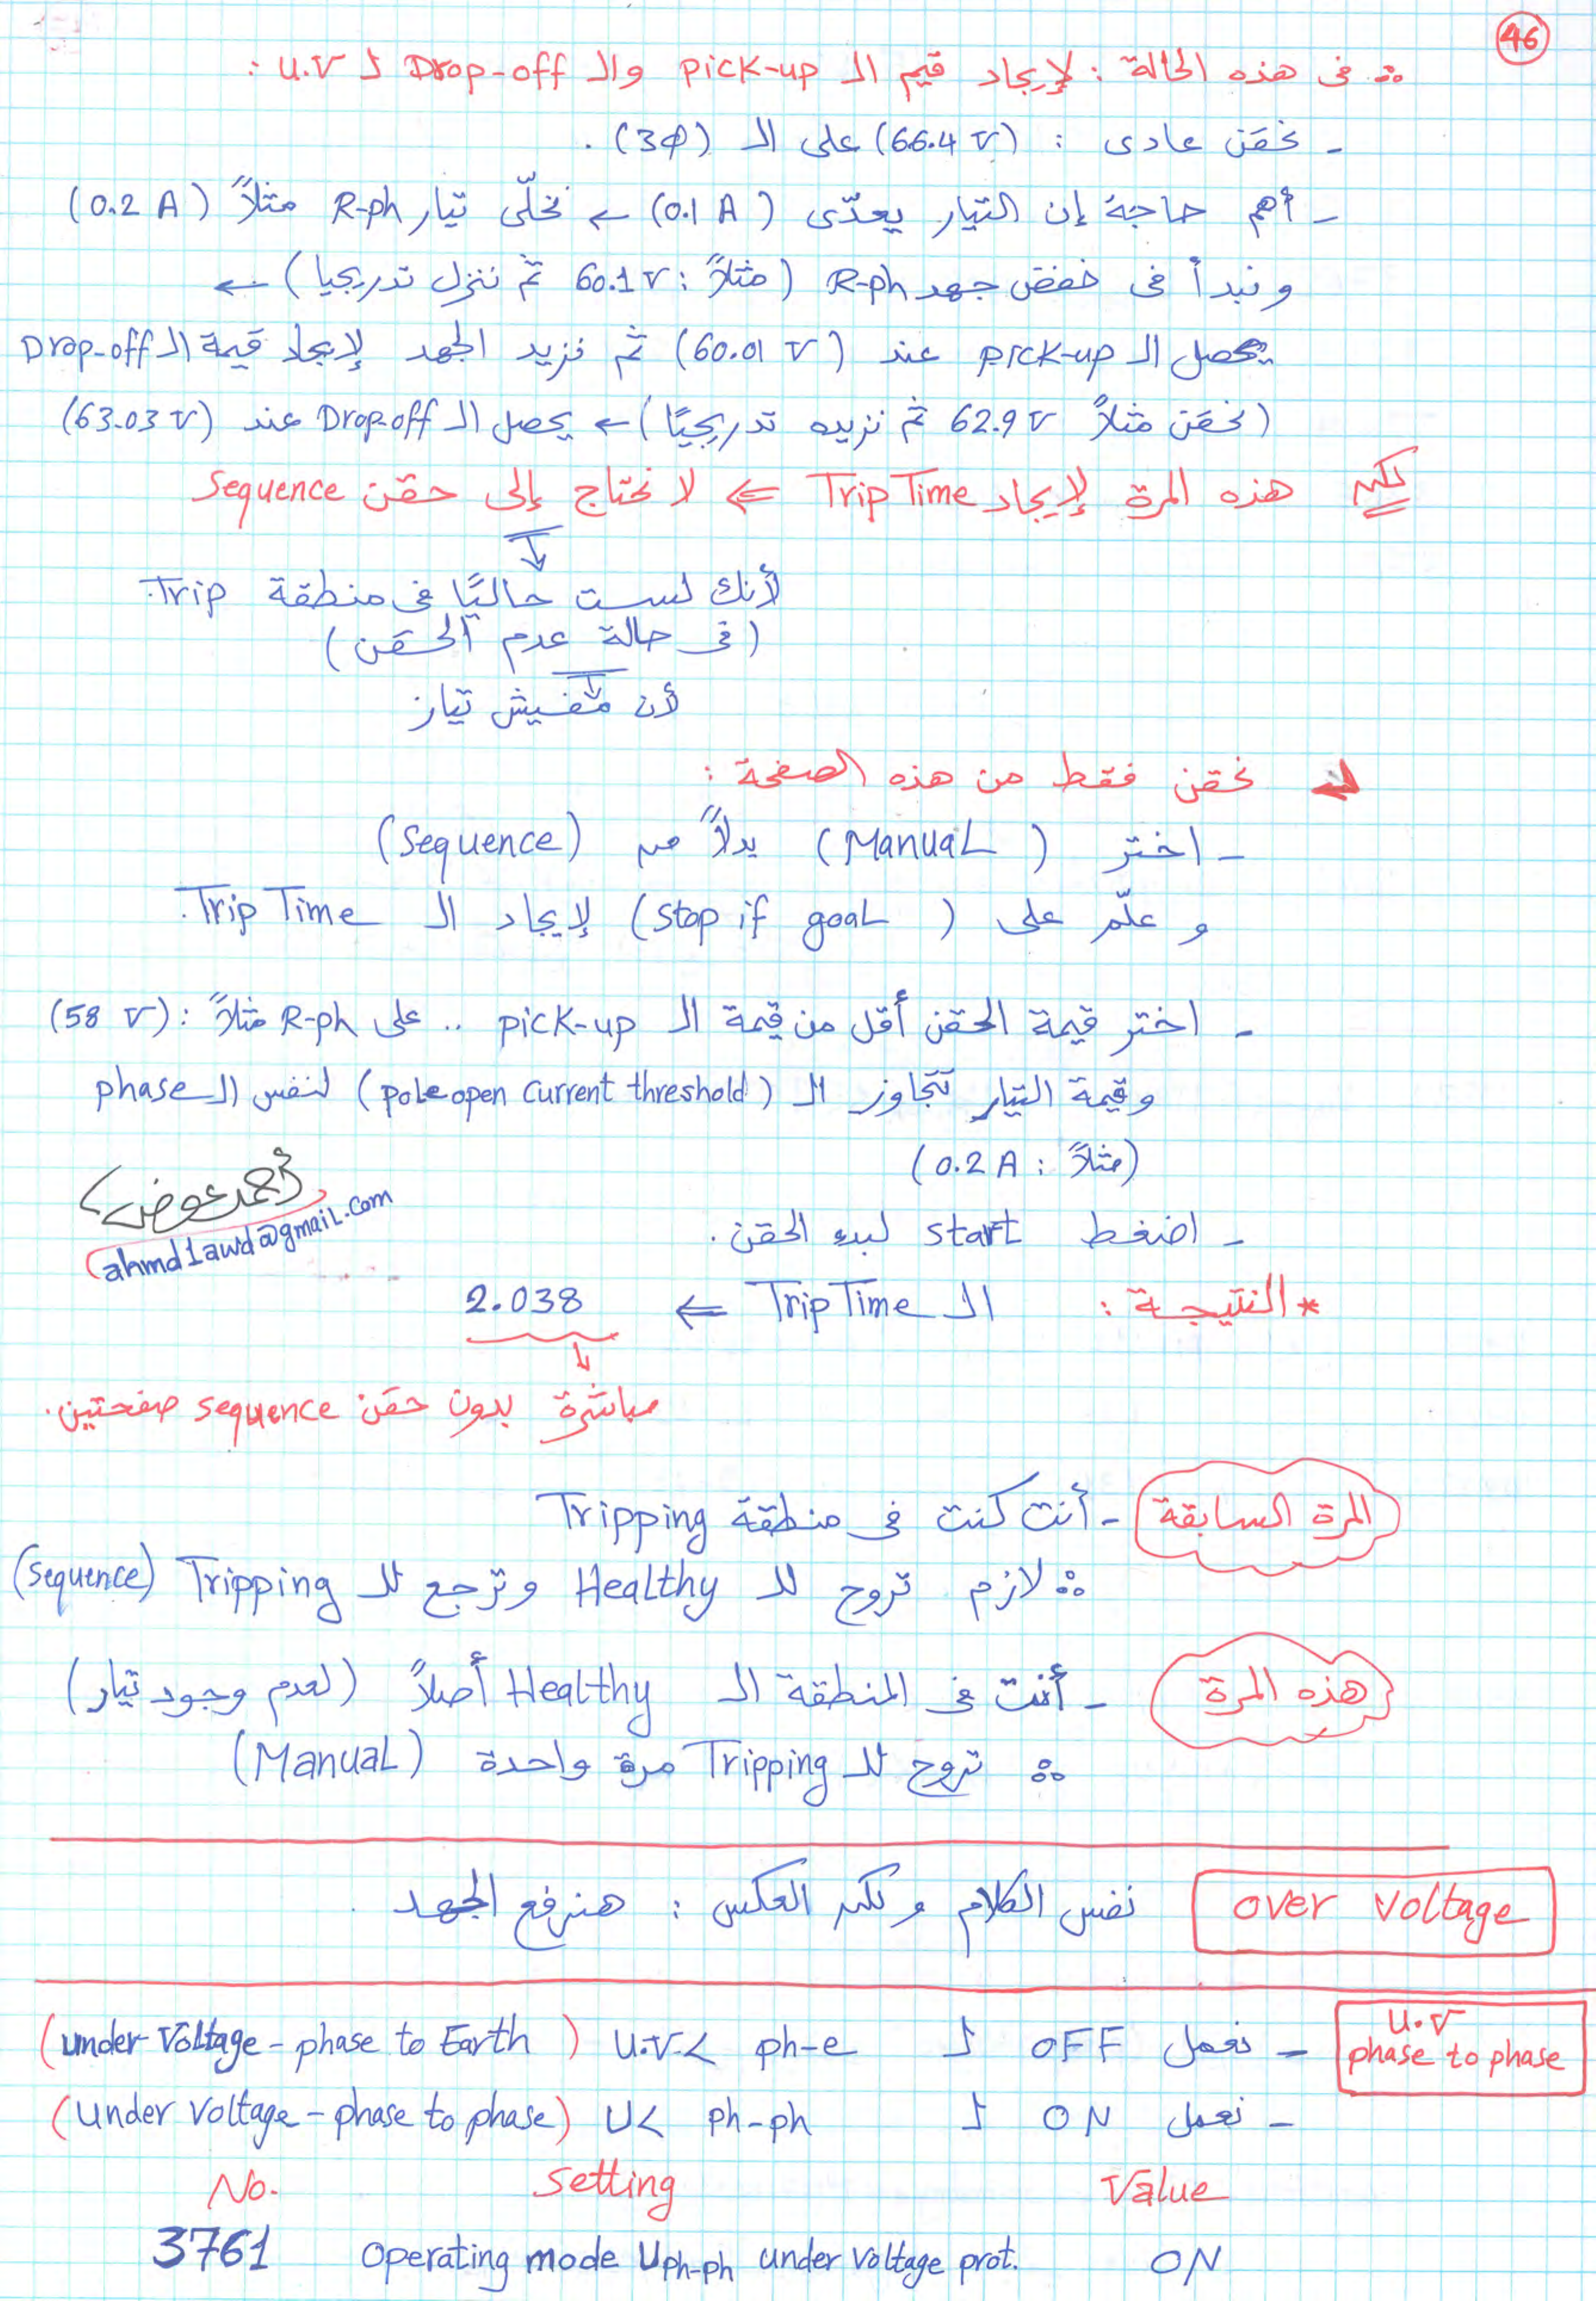 46
∴ فى هذه الحالة : لإيجاد قيم الـ Pick-up والـ Drop-off لـ U.V :
- نحقن عادى : (66.4 V) على الـ (3Φ) .
- أهم حاجة إن التيار يعدّى (0.1 A) ← نخلّى تيار R-ph مثلاً (0.2 A)
و نبدأ فى خفض جهد R-ph (مثلاً : 60.1 V ثم ننزل تدريجيا) ←
يحصل الـ pick-up عند (60.01 V) ثم نزيد الجهد لإيجاد قيمة الـ Drop-off
(نحقن مثلاً 62.9 V ثم نزيده تدريجيًا) ← يحصل الـ Drop-off عند (63.03 V)
لكن هذه المرة لإيجاد Trip Time ⇐ لا نحتاج إلى حقن Sequence
لأنك لست حاليًا فى منطقة Trip.
(فى حالة عدم الحقن)
لأن مفيش تيار
نحقن فقط من هذه الصفحة :
- اختر (Manual) بدلاً من (Sequence)
و علّم على (Stop if goal) لإيجاد الـ Trip Time.
- اختر قيمة الحقن أقل من قيمة الـ pick-up .. على R-ph مثلاً : (58 V)
وقيمة التيار تتجاوز الـ (Pole open current threshold) لنفس الـ phase
(مثلاً : 0.2 A)
أحمد عوض
ahmd1awd@gmail.com
- اضغط start لبدء الحقن .
* النتيجة : الـ Trip Time ⇐ 2.038
مباشرة بدون حقن sequence صفحتين.
المرة السابقة - أنت كنت فى منطقة Tripping
∴ لازم تروح للـ Healthy وترجع للـ Tripping (Sequence)
هذه المرة - أنت فى المنطقة الـ Healthy أصلاً (لعدم وجود تيار)
∴ تروح للـ Tripping مرة واحدة (Manual)
over voltage نفس الكلام ولكن العكس : هنرفع الجهد .
U.V phase to phase
- نعمل OFF لـ U.V.< ph-e (under voltage - phase to Earth)
- نعمل ON لـ U< ph-ph (under voltage - phase to phase)
No. Setting Value
3761 Operating mode Uph-ph under voltage prot. ON